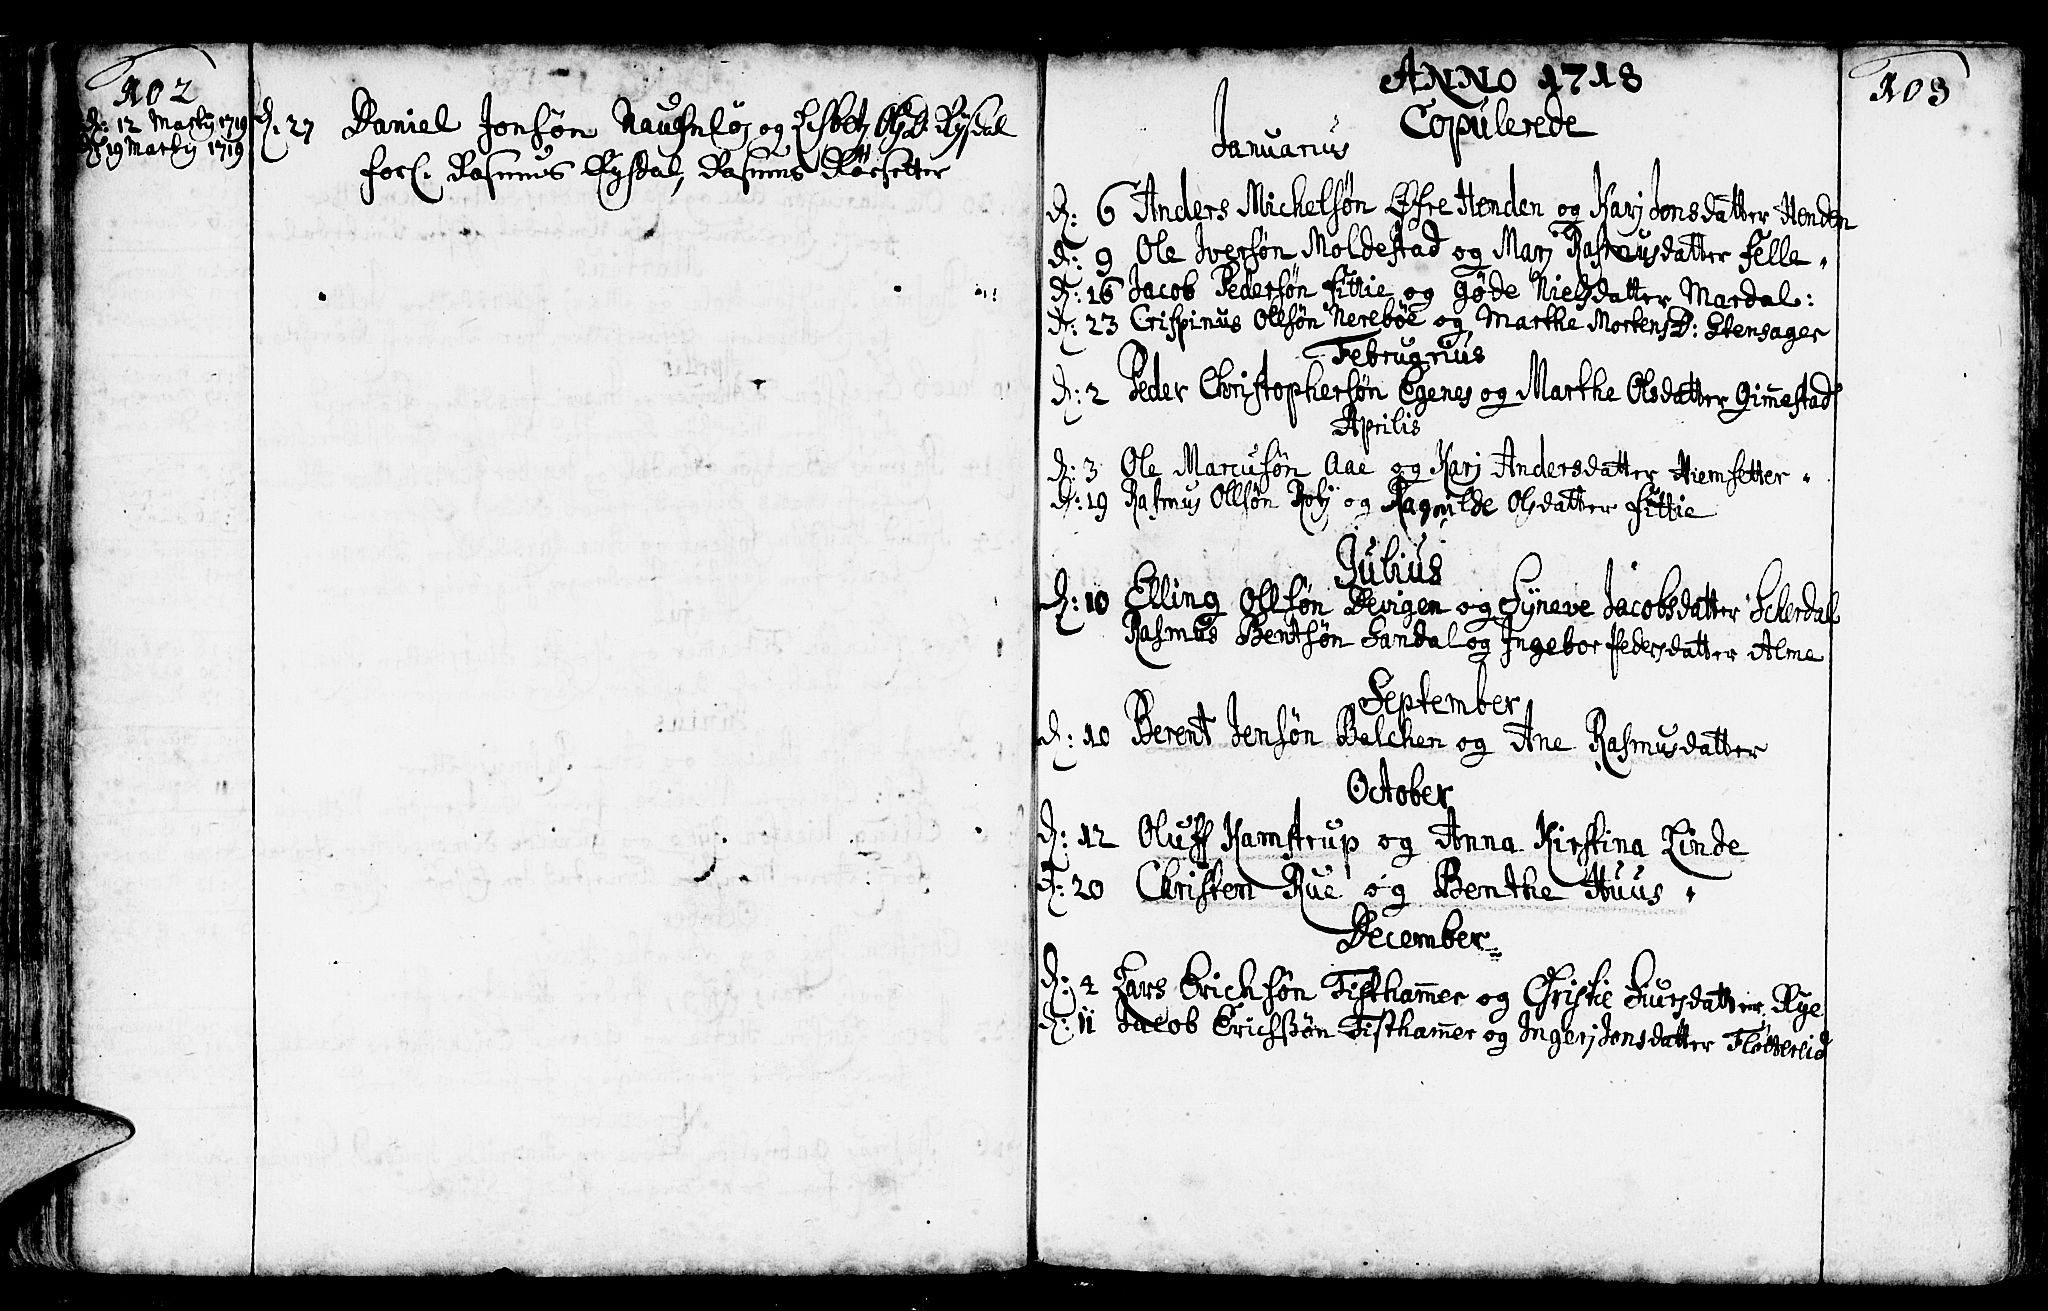 102
d: 12 Martij 1719
d: 19 Martij 1719
d. 27 Daniel Jonsøn og Lisbet Ols D. Rysdal
forl. Rasmus Rysdal, Rasmus Rørsetter
103
ANNO 1718
Copulerede
Januarius
d: 6 Anders Michelsøn Øfre Henden og Karj Jonsdatter Henden
d: 9 Ole Iversøn Moldestad og Marj Rasmusdatter Felle
d: 16 Jacob Pedersøn Fittie og Gøde Nielsdatter Mardal:
d: 23 Crispinus Ollsøn Nerebøe og Marthe Mortens D: Stensager
Februarius
d: 2 Peder Christophersøn Egenes og Marthe Olsdatter Gim̅estad
Aprilis
d: 3 Ole Marcusøn Aae og Karj Andersdatter Hiemsetter
d: 19 Rasmus Ollsøn Roti og Ragnilde Olsdatter Fittie
Julius
d: 10 Elling Ollsøn Devigen og Syneve Jacobsdatter Scherdal
Rasmus Bentsøn Sandal og Ingebor Pedersdatter Alme
September
d: 10 Berent Jensøn Balchen og Ane Rasmusdatter
October
d: 12 Oluff Kamstrup og Anna Kirstina Linde
d: 20 Christen Rue og Benthe Huus
December
d: 4 Lars Erichsøn Tistham̅er og Christie Siursdatter Rye
d: 11 Jacob Erichssøn Tistham̅er og Ingerj Jonsdatter Fløttereid